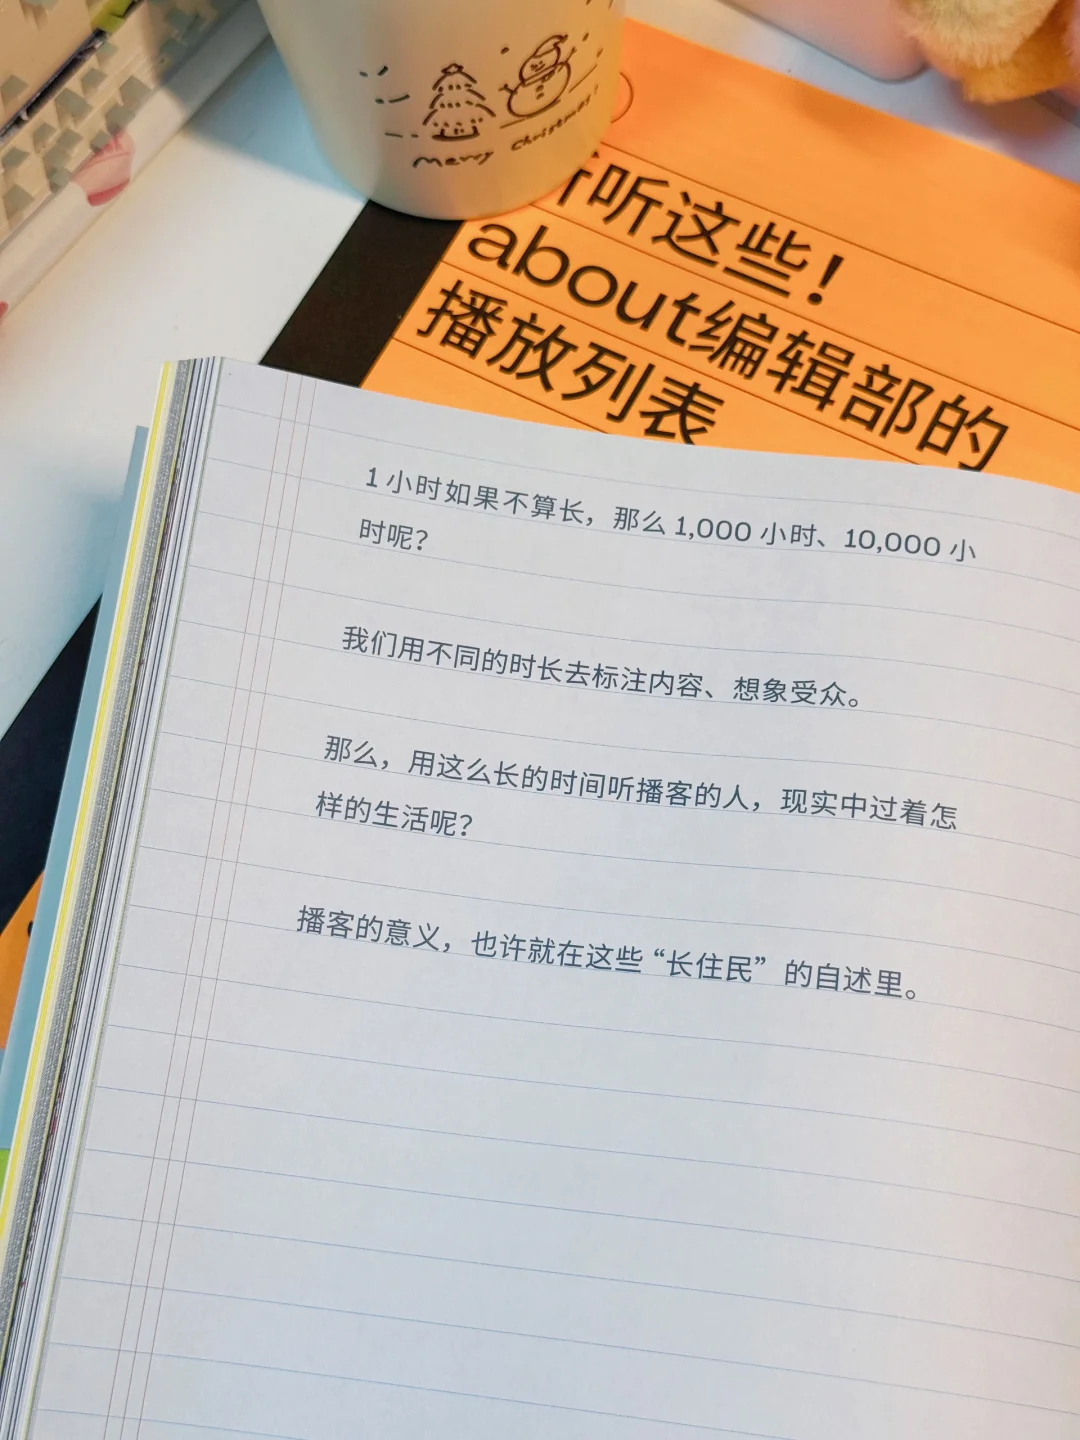 Merry Christmas!
听听这些！
about编辑部的
播放列表
1 小时如果不算长，那么 1,000 小时、10,000 小
时呢？
我们用不同的时长去标注内容、想象受众。
那么，用这么长的时间听播客的人，现实中过着怎
样的生活呢？
播客的意义，也许就在这些“长住民”的自述里。